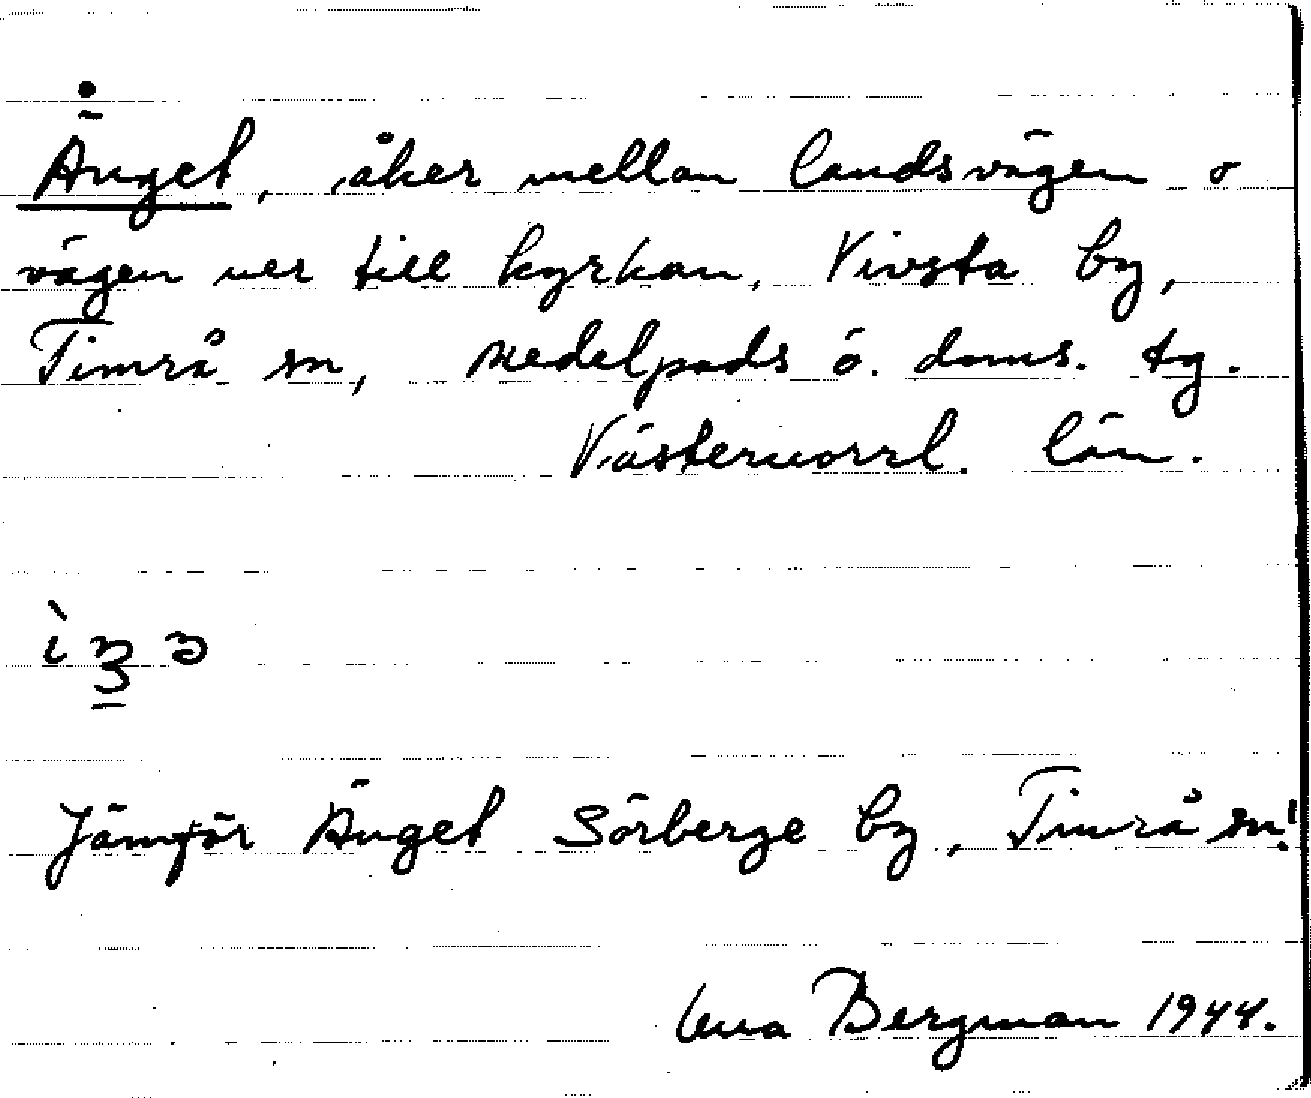 Änget, åker mellan landsvägen o
vägen ner till kyrkan, Vivsta by,
Timrå sn, Medelpads ö. doms. tg.
Västernorrl. län.
Jämför Änget Sörberge by, Timrå sn!
Bergman 1944.